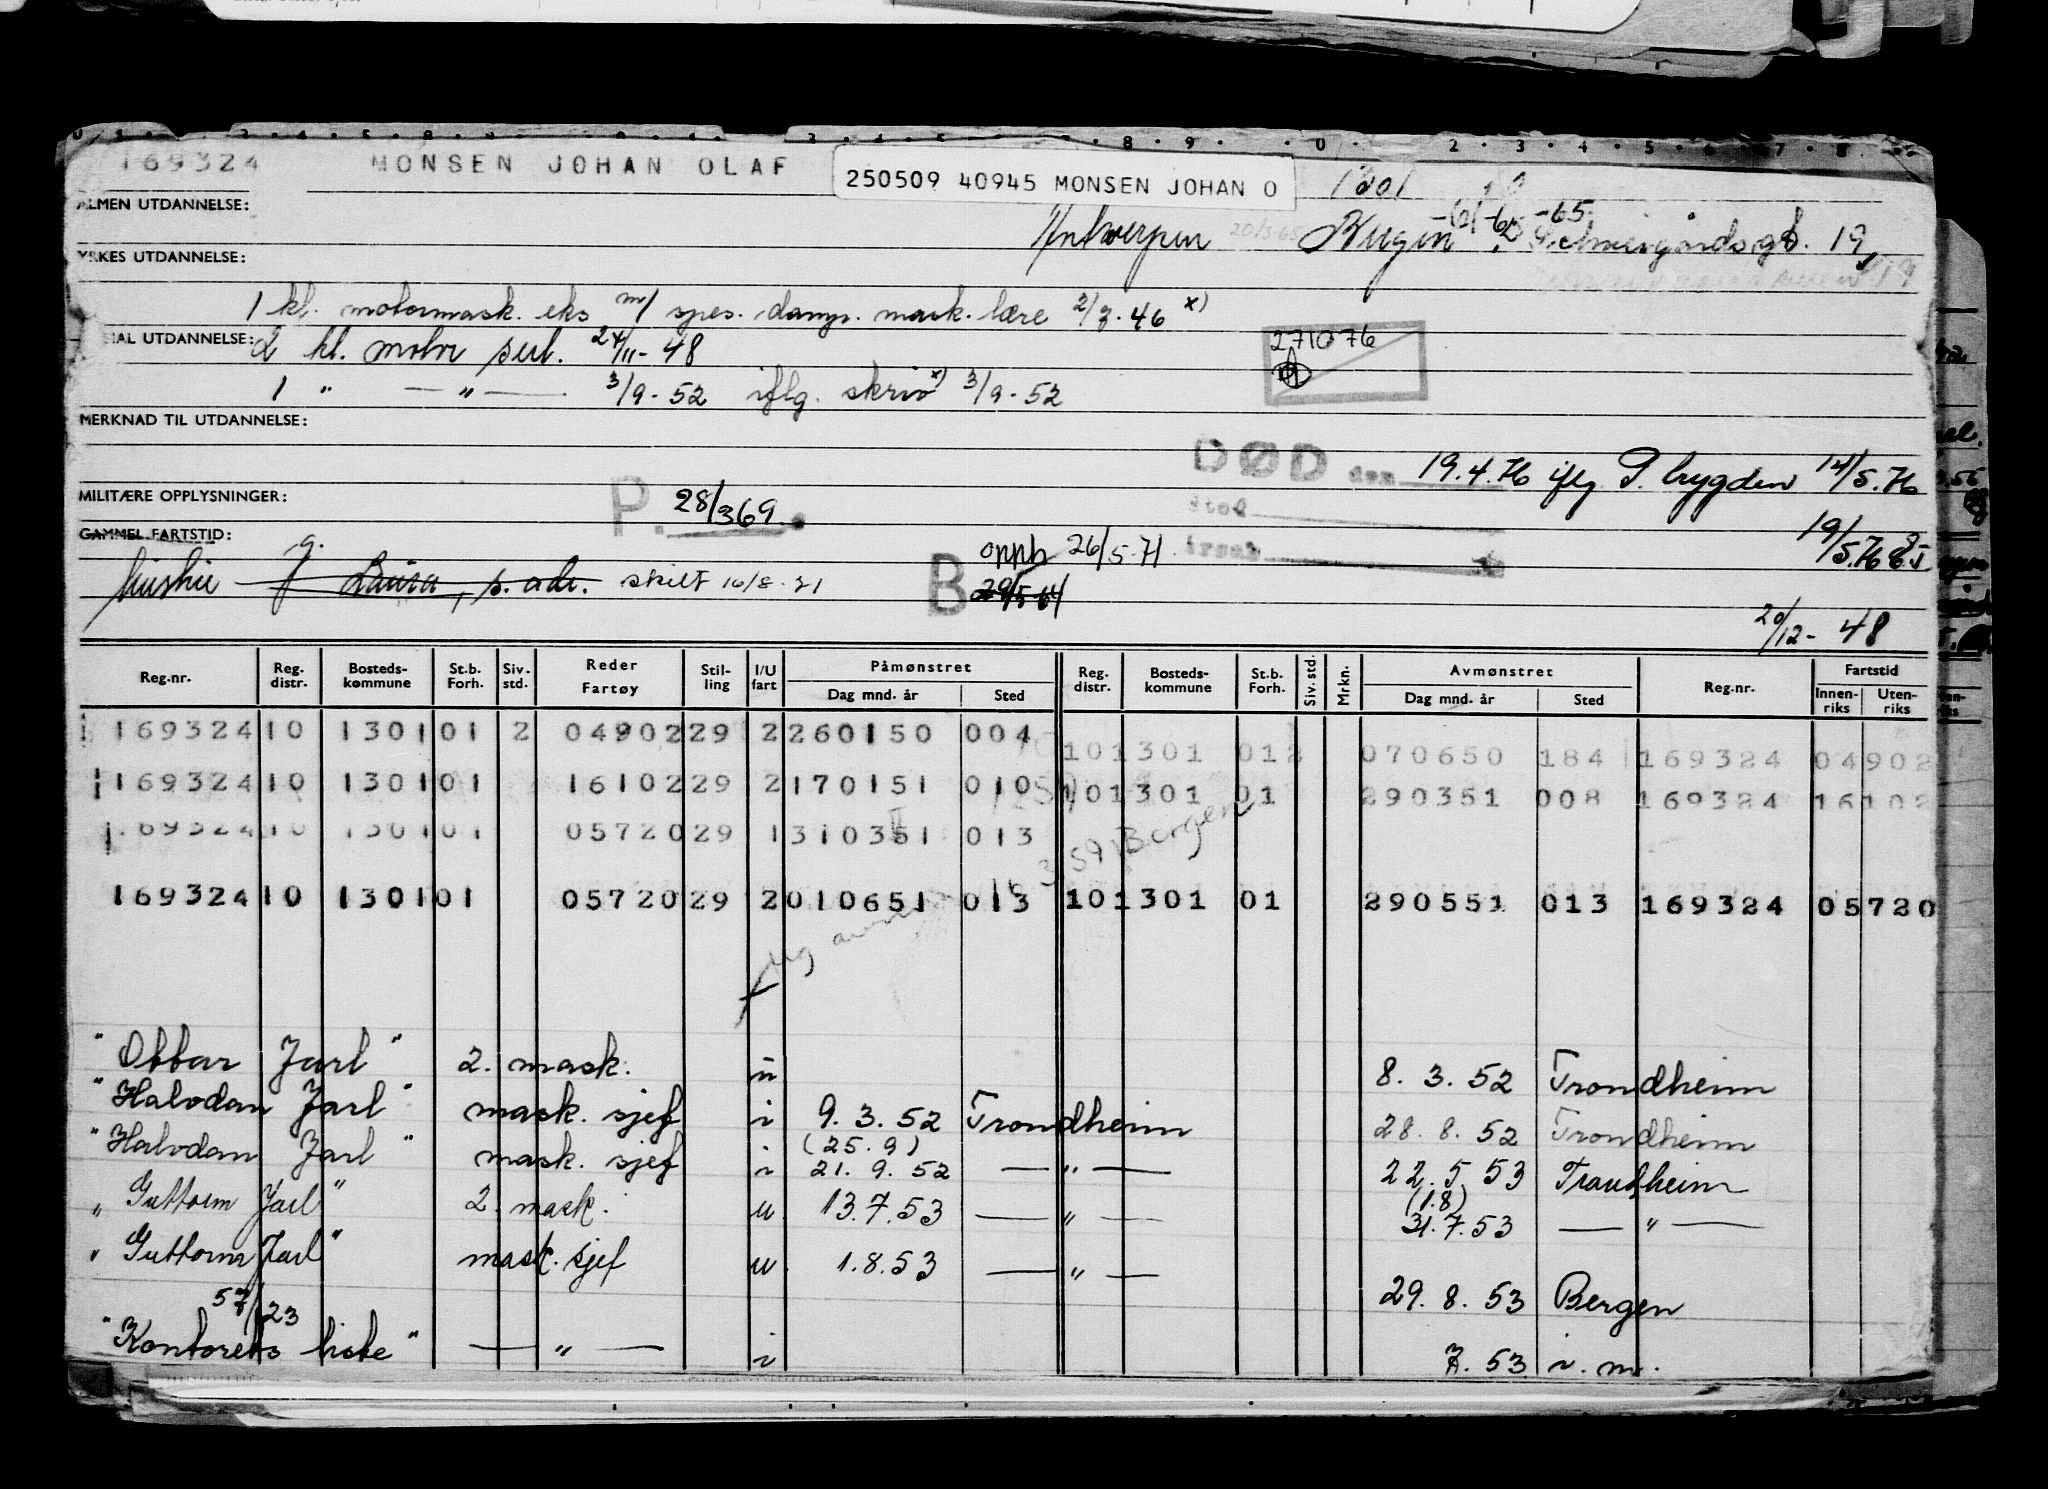 169324 MONSEN JOHAN OLAF 250509 40945 MONSEN JOHAN O 1301
ALMEN UTDANNELSE:
-61 -62 -65
Antwerpen Bergen 19
YRKES UTDANNELSE:
1 kl. motormask. eks m/ spes. damp. mask. lære 2/3-46 x)
SIAL UTDANNELSE: 2 kl. motor sert. 24/11-48
271076
1 " — " — 3/9-52 iflg. skriv x) 3/9-52
MERKNAD TIL UTDANNELSE:
DØD den 19.4.76 iflg P. trygden 14/5.76
MILITÆRE OPPLYSNINGER:
P. 28/369
Sted
GAMMEL FARTSTID:
19/5.76
Årsak
g.
opph 26/5-71
hustru Laura, s. adr. skilt 16/8-71
B 29/5-64
20/12-48
Reg.nr. Reg. distr. Bosteds-kommune St.b. Forh. Siv. std. Reder Fartøy Stil-ling I/U fart Påmønstret Dag mnd. år Sted Reg. distr. Bosteds-kommune St.b. Forh. Siv. std. Mrkn. Avmønstret Dag mnd. år Sted Reg.nr. Fartstid Innen-riks Uten-riks
169324 10 1301 01 2 04902 29 2 260150 004 10 1301 012 070650 184 169324 04902
169324 10 1301 01 16102 29 2 170151 010 10 1301 01 290351 008 169324 16102
169324 10 1301 01 05720 29 1 310351 013
Bergen
169324 10 1301 01 05720 29 2 010651 013 10 1301 01 290551 013 169324 05720
"Ottar Jarl" 2. mask. u 8.3.52 Trondheim
"Halvdan Jarl" mask. sjef i 9.3.52 Trondheim 28.8.52 Trondheim
"Halvdan Jarl" mask. sjef i (25.9) 21.9.52 — " — 22.5.53 Trondheim
"Guttorm Jarl" 2. mask. u 13.7.53 — " — (1.8) 31.7.53 — " —
"Guttorm Jarl" mask. sjef u 1.8.53 — " — 29.8.53 Bergen
57/23
"Kontorets liste" — " — i 7.53 i.m.